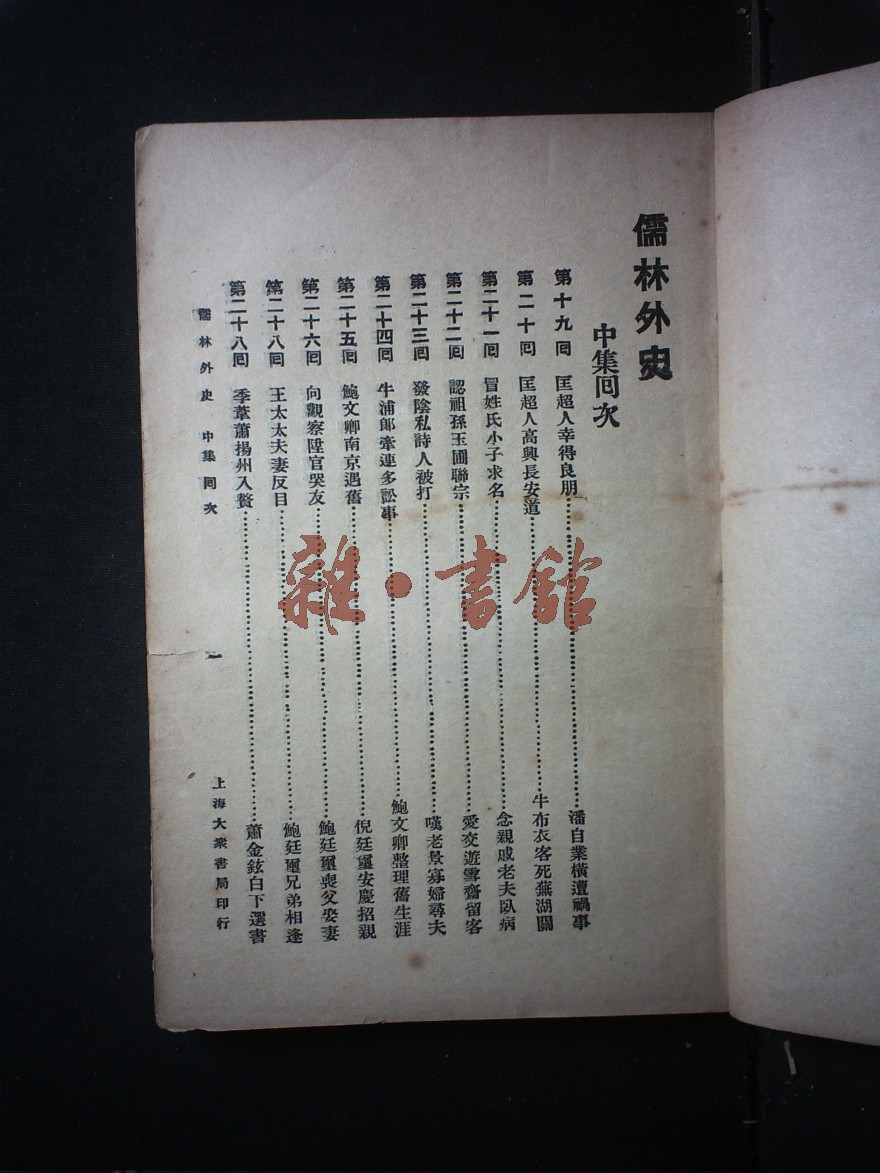 儒林外史
中集回次
第十九回 匡超人幸得良朋 潘自業橫遭禍事
第二十回 匡超人高興長安道 牛布衣客死蕪湖關
第二十一回 冒姓氏小子求名 念親戚老夫臥病
第二十二回 認祖孫玉圃聯宗 愛交遊雪齋留客
第二十三回 發陰私詩人被打 嘆老景寡婦尋夫
第二十四回 牛浦郎牽連多訟事 鮑文卿整理舊生涯
第二十五回 鮑文卿南京遇舊 倪廷璽安慶招親
第二十六回 向觀察陞官哭友 鮑廷璽喪父娶妻
第二十八回 王太太夫妻反目 鮑廷璽兄弟相逢
第二十八回 季葦蕭揚州入贅 蕭金鉉白下選書
儒林外史 中集回次 一 上海大衆書局印行
雜·書館